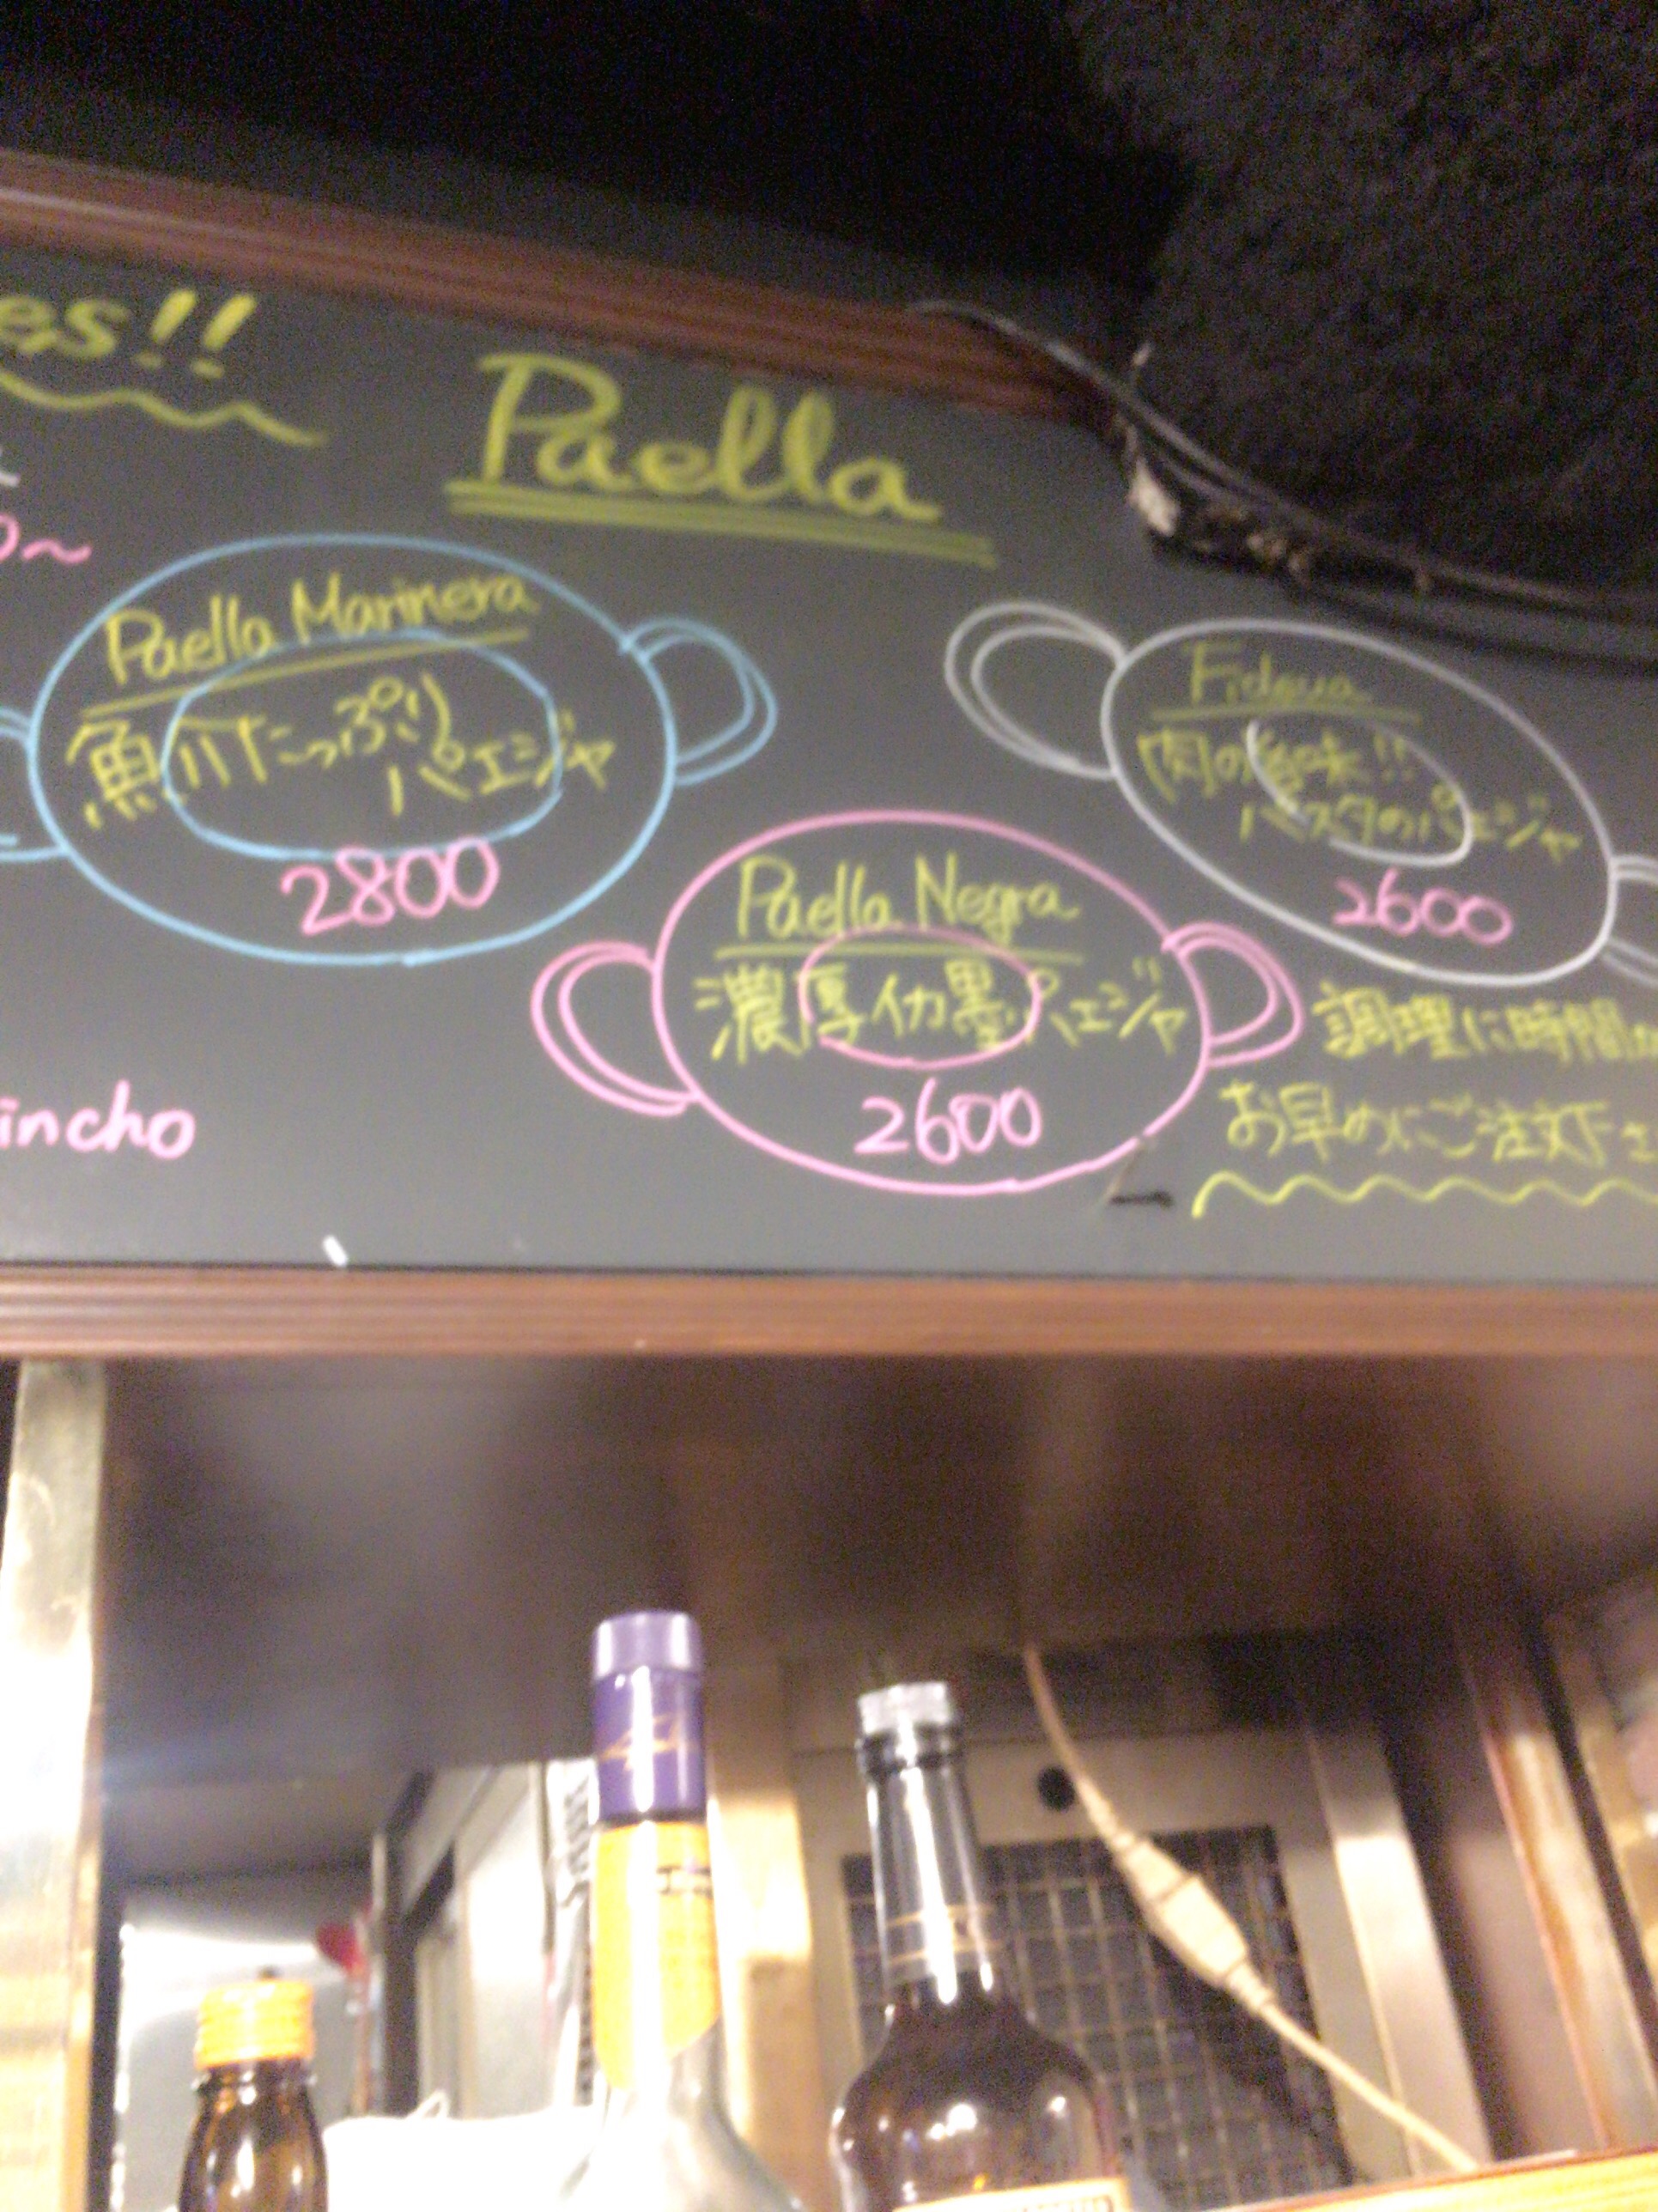 es!!
Paella
Paella Marinera
魚介たっぷり
パエジャ
2800
Fideua
肉の旨味!!
パスタのパエジャ
2600
Paella Negra
濃厚イカ墨パエジャ
2600
調理に時間が
お早めにご注文下さ
incho